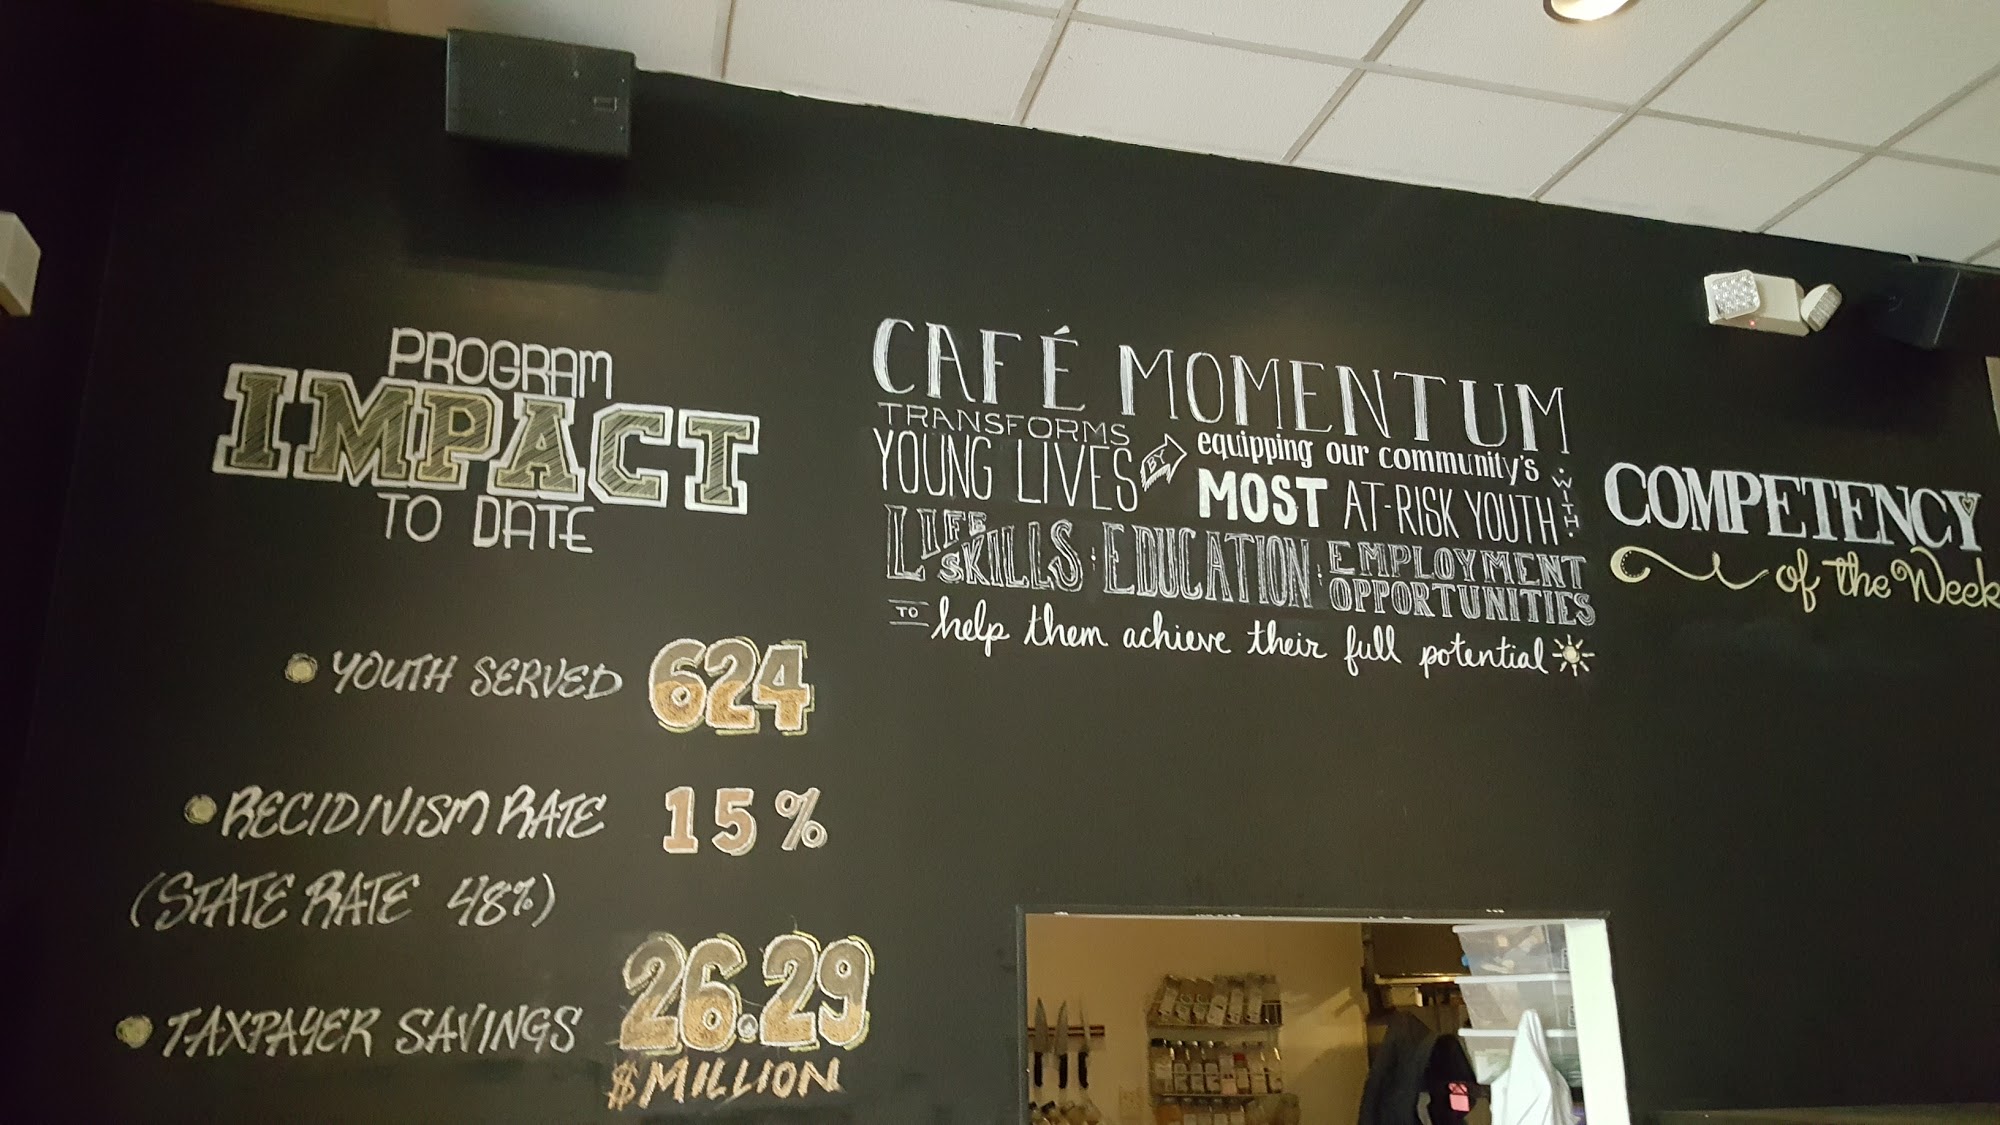 PROGRAM
IMPACT
TO DATE
• YOUTH SERVED 624
• RECIDIVISM RATE 15%
(STATE RATE 48%)
• TAXPAYER SAVINGS 26.29
$ MILLION
CAFÉ MOMENTUM
TRANSFORMS
YOUNG LIVES BY
equipping our community's
MOST AT-RISK YOUTH
• WITH •
LIFE SKILLS : EDUCATION : EMPLOYMENT OPPORTUNITIES
TO help them achieve their full potential
COMPETENCY
of the Week